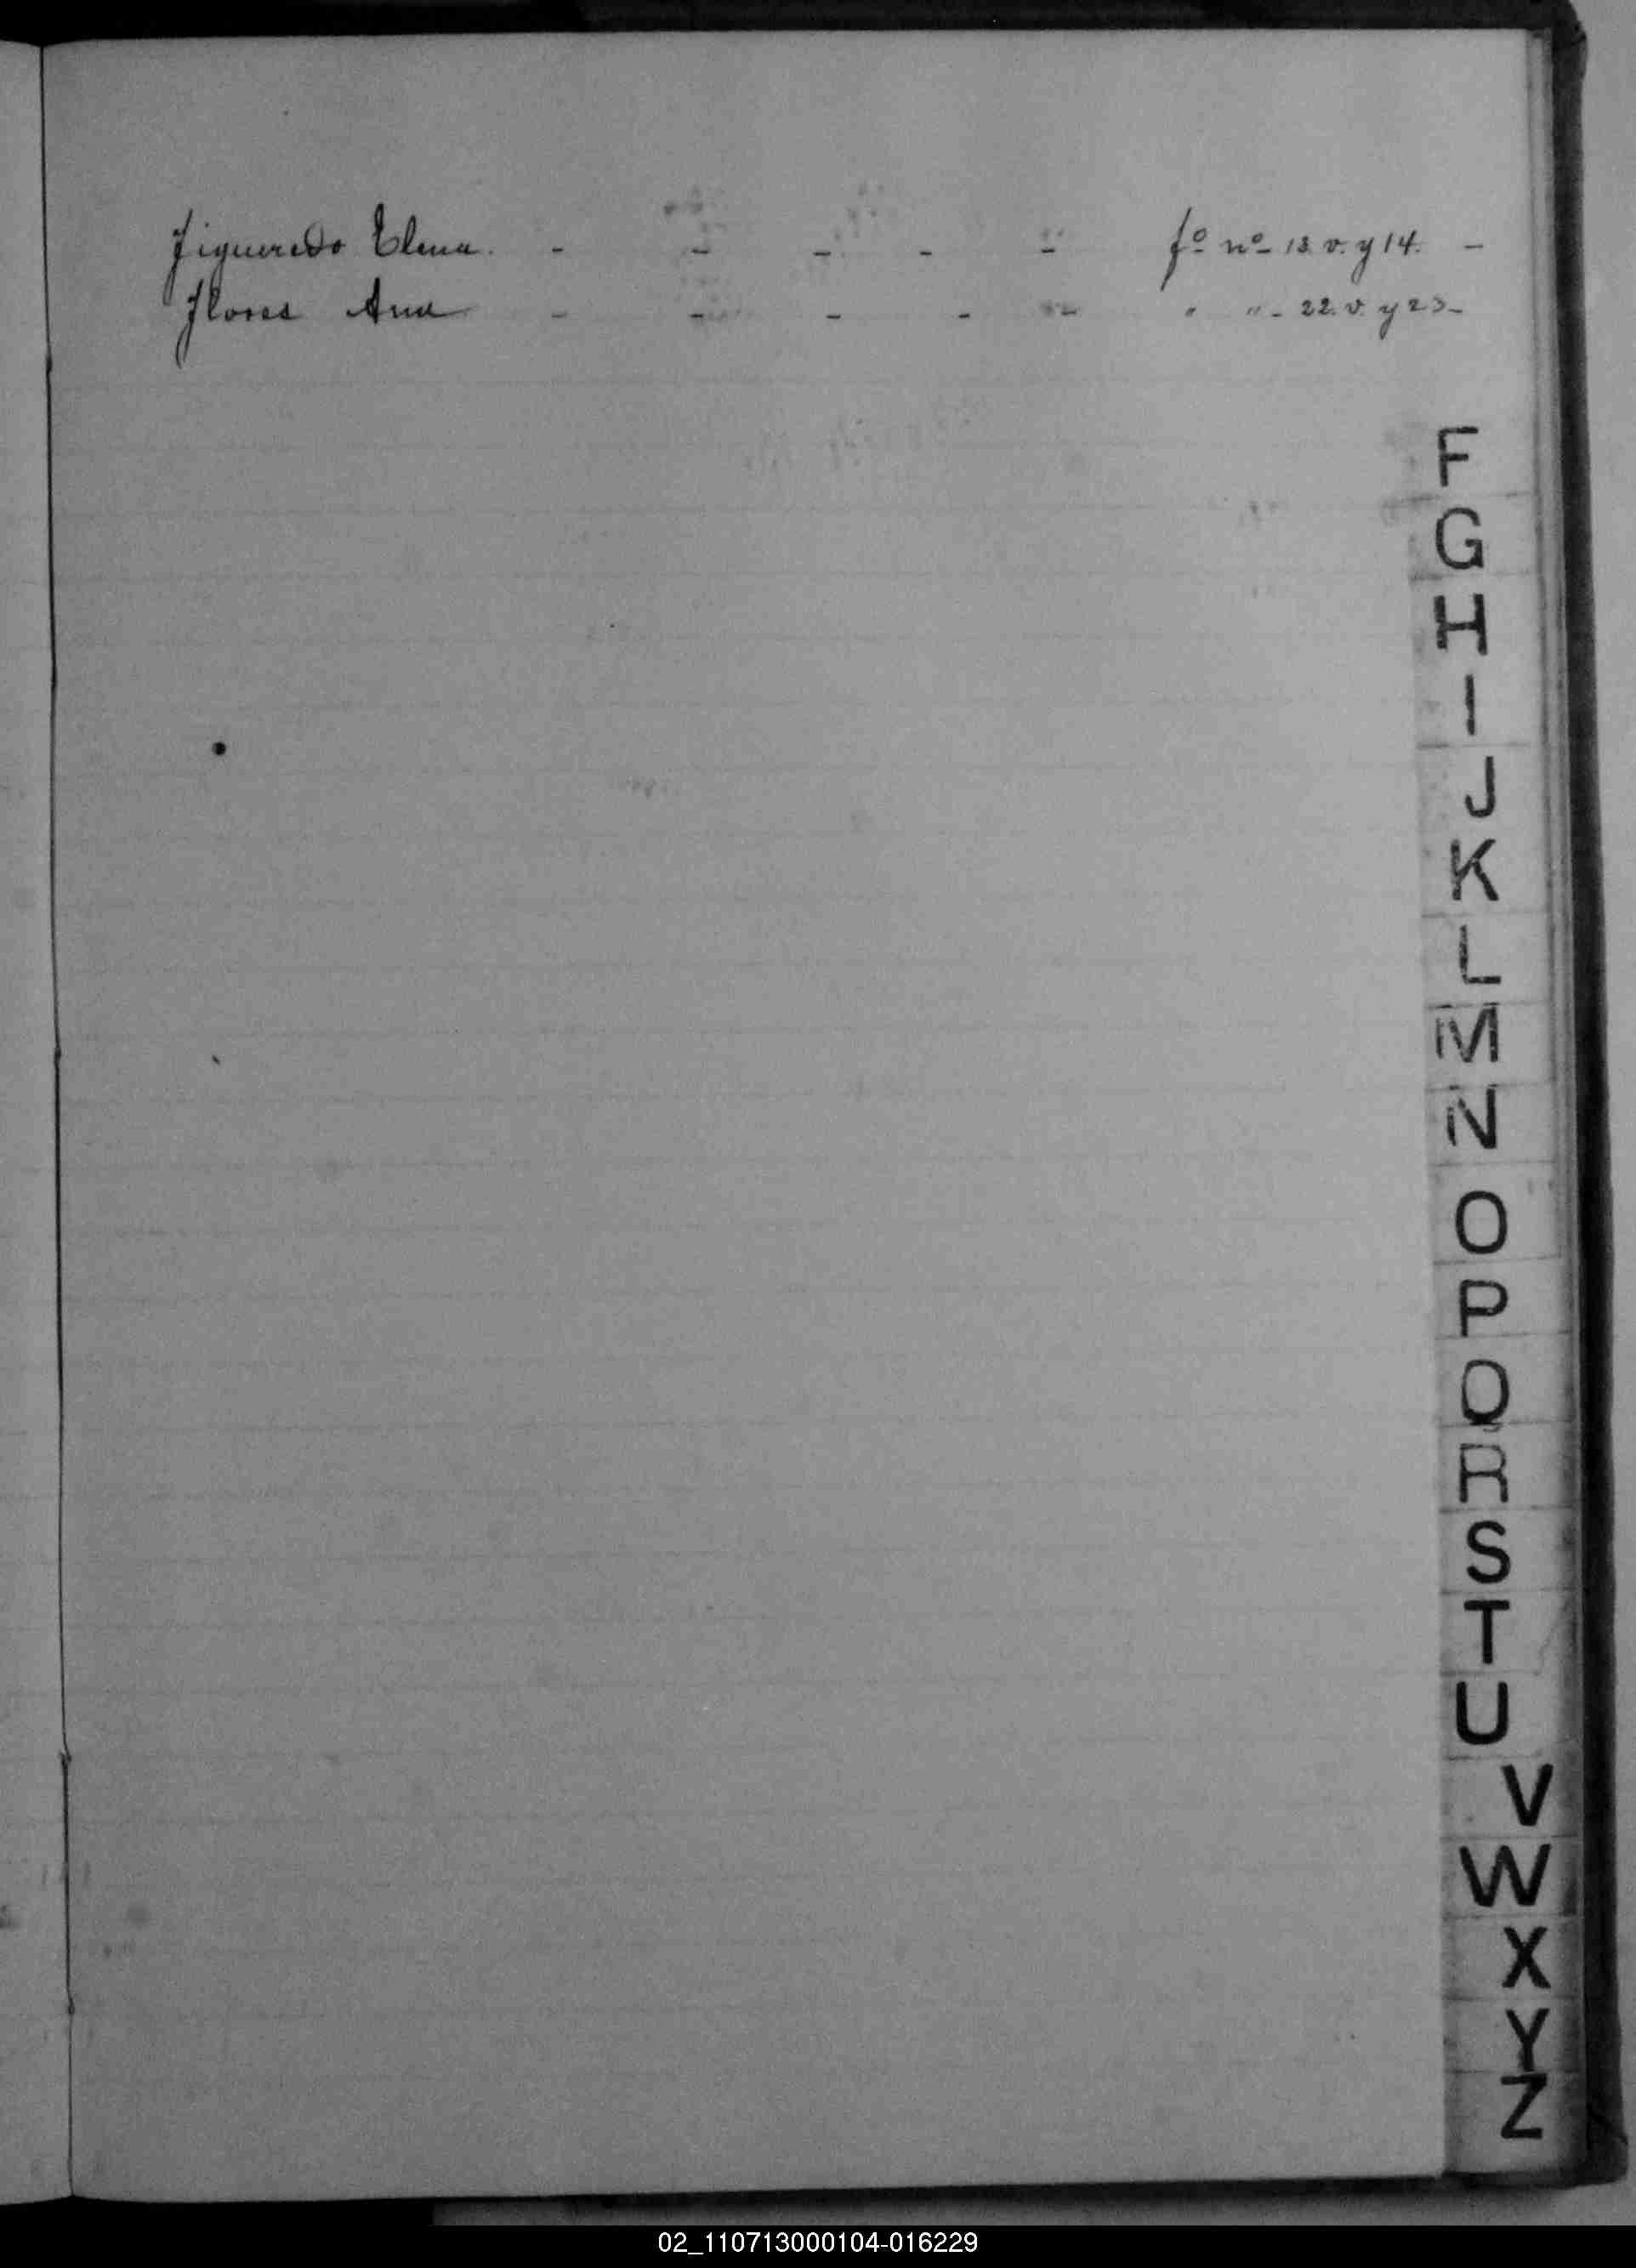 Figueredo Elena. - - - - - fº nº 13. v. y 14. -
Flores Ana - - - - - " " - 22. v. y 23 -
F
G
H
I
J
K
L
M
N
O
P
Q
R
S
T
U
V
W
X
Y
Z
02_110713000104-016229